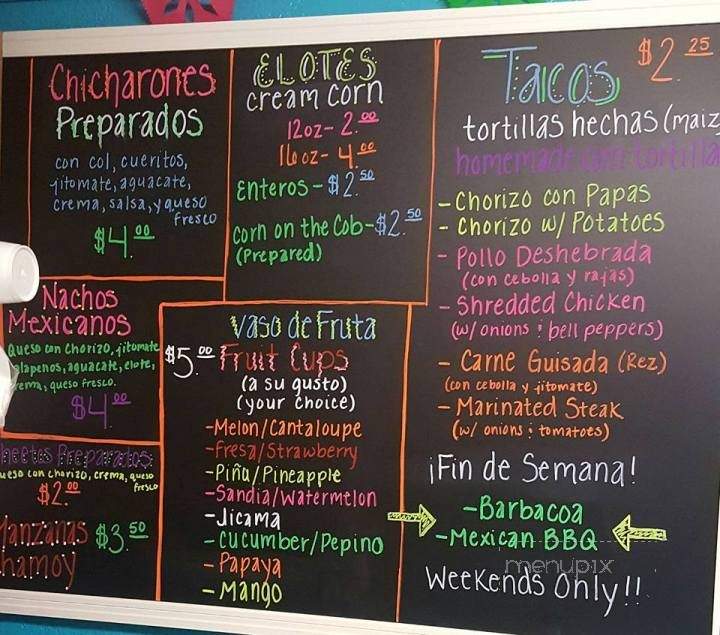 Chicharones
Preparados
con col, cueritos,
jitomate, aguacate,
crema, salsa, y queso
fresco
$4.00
ELOTES
cream corn
12oz- 2.00
16oz- 4.00
Enteros - $2.50
Corn on the Cob-$2.50
(Prepared)
Tacos $2.25
tortillas hechas (maiz
homemade corn tortilla
- Chorizo con Papas
- Chorizo w/ Potatoes
- Pollo Deshebrada
(con cebolla y rajas)
- Shredded Chicken
(w/ onions & bell peppers)
- Carne Guisada (Rez)
(con cebolla y jitomate)
- Marinated Steak
(w/ onions & tomatoes)
¡Fin de Semana!
-Barbacoa
-Mexican BBQ
Weekends Only!!
Nachos
Mexicanos
Queso con chorizo, jitomate
alapenos, aguacate, elote,
rema, queso fresco.
$4.00
heetos Preparados
ueso con chorizo, crema, queso
fresco
$2.00
Manzanas $3.50
hamoy
Vaso de Fruta
$5.00 Fruit Cups
(a su gusto)
(your choice)
-Melon/Cantaloupe
-Fresa/Strawberry
-Piña/Pineapple
-Sandia/Watermelon
-Jicama
-Cucumber/Pepino
-Papaya
-Mango
menupix